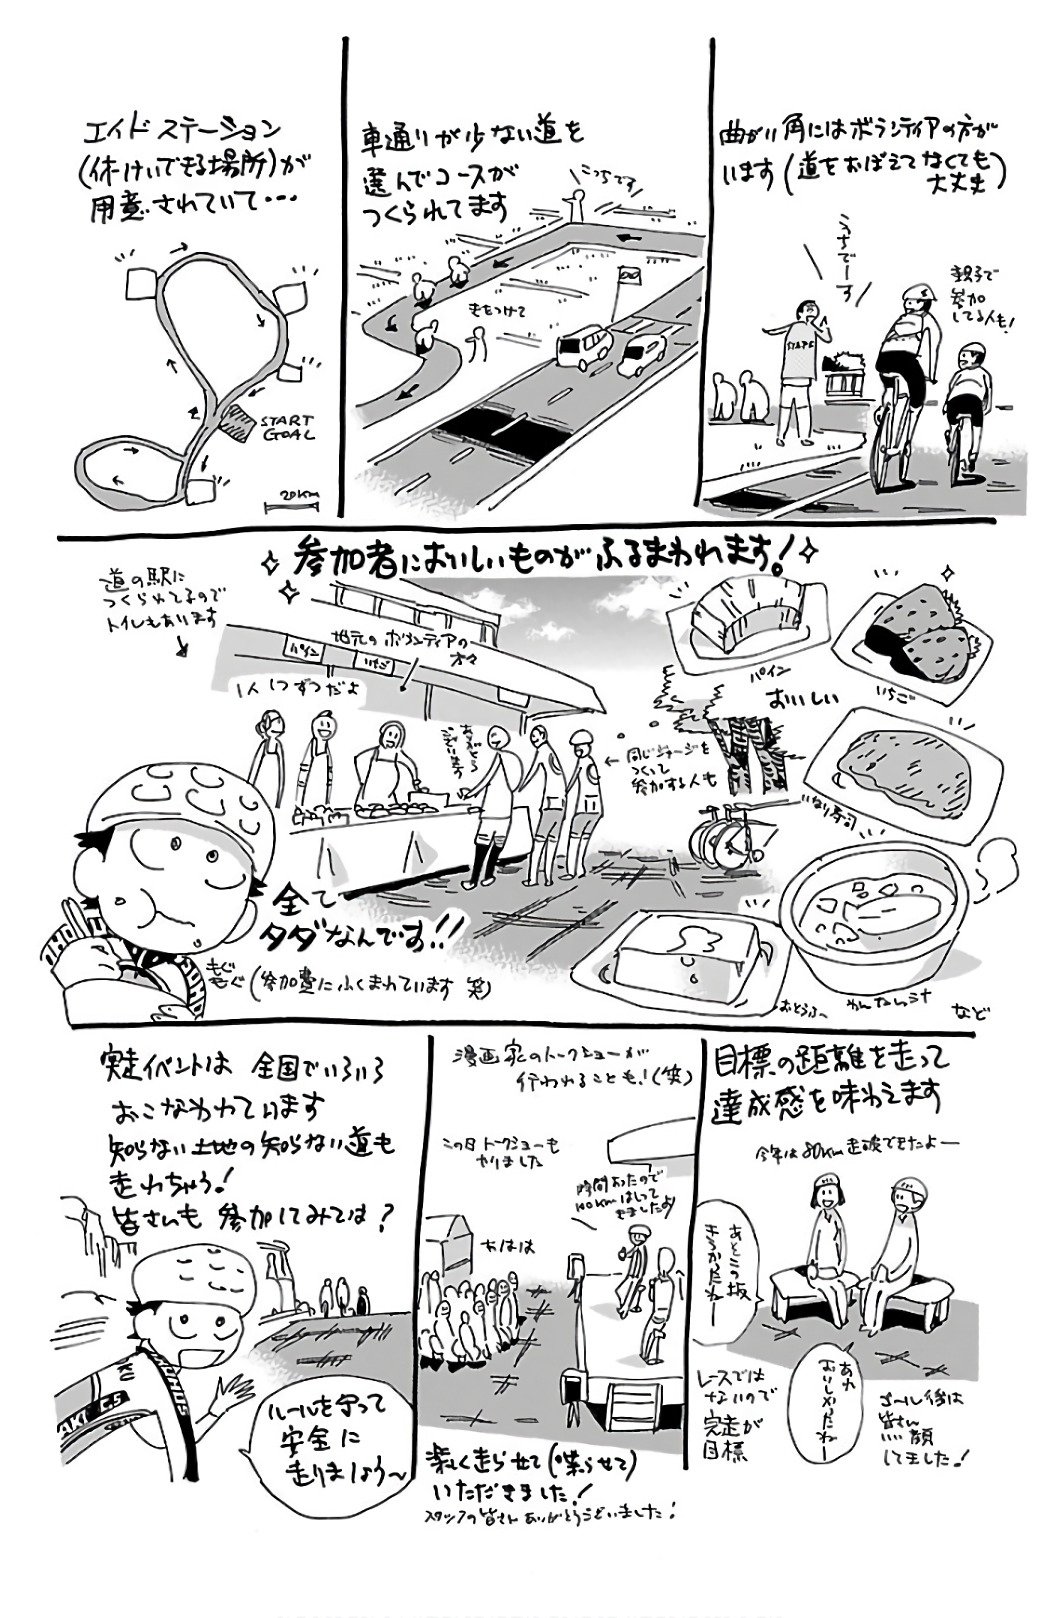 エイドステーション
(休けいできる場所)が
用意されていて・・・
START
GOAL
20KM
車通りが少ない道を
選んでコースが
つくられてます
こっちです
気をつけて
曲がり角にはボランティアの方が
います(道をおぼえてなくても
大丈夫)
こっちでーす
STAFF
親子で
参加
してる人も!
参加者においしいものがふるまわれます!
道の駅に
つくられてるので
トイレもあります
地元のボランティアの
方々
パイン
いちご
1人1つずつだよ
ありがとう
ございます
同じジャージを
つくって
参加する人も
パイン
おいしい
いちご
いなり寿司
おとうふ〜
など
全て
タダなんです!!
もぐ
もぐ
(参加費にふくまれています 笑)
実走イベントは 全国でいろいろ
おこなわれています
知らない土地の知らない道も
走れちゃう!
皆さんも参加してみては?
ルールを守って
安全に
走りましょう〜
漫画家のトークショーが
行われることも!(笑)
この日トークショーも
やりました
時間あったので
100kmはしって
きましたよ
あはは
楽しく走らせて(喋らせて)
いただきました!
スタッフの皆さんありがとうございました!
目標の距離を走って
達成感を味わえます
今年は80km走破できたよー
あとこの坂
きつかったねー
あれ
おいしかったねー
レースでは
ないので
完走が
目標
ゴール後は
皆さん
笑顔
してました!